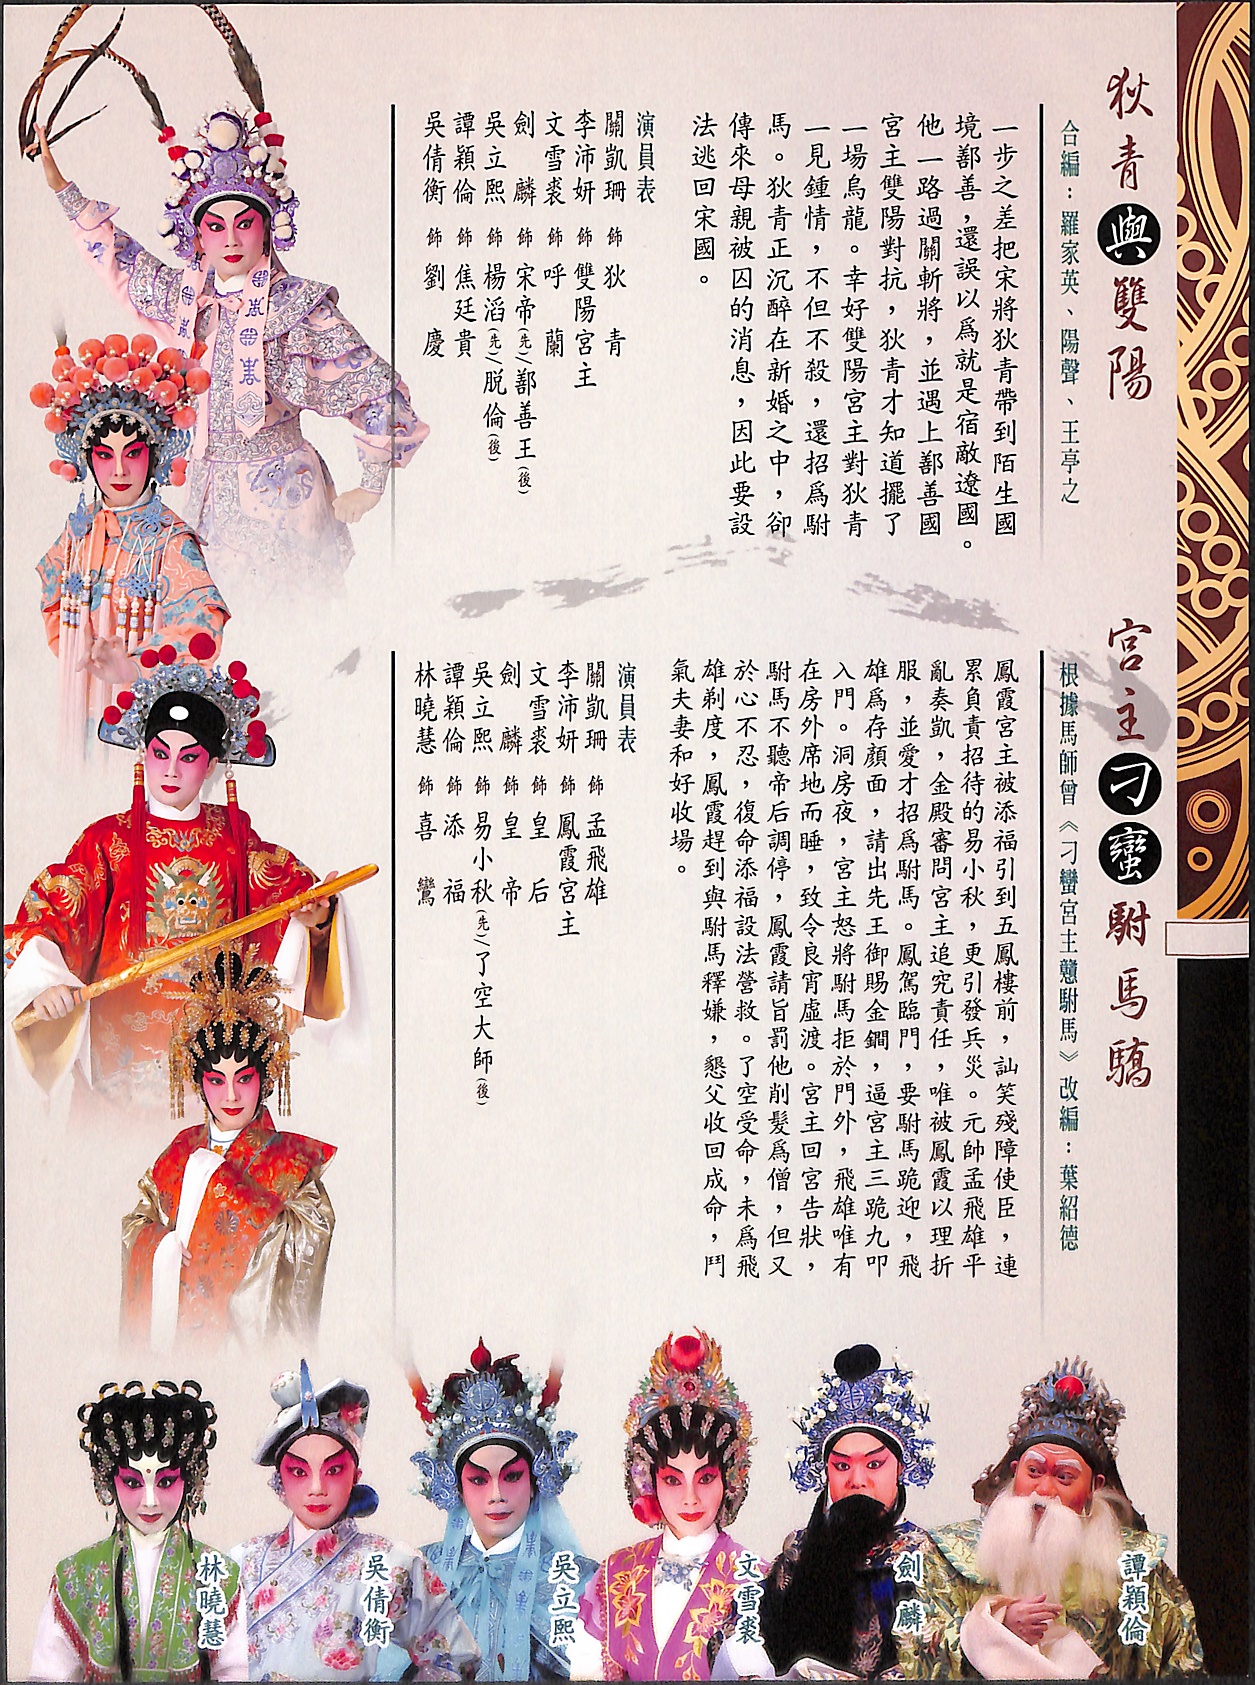 狄青與雙陽
合編：羅家英、陽聲、王亭之
一步之差把宋將狄青帶到陌生國
境鄯善，還誤以為就是宿敵遼國。
他一路過關斬將，並遇上鄯善國
宮主雙陽對抗，狄青才知道擺了
一場烏龍。幸好雙陽宮主對狄青
一見鍾情，不但不殺，還招為駙
馬。狄青正沉醉在新婚之中，卻
傳來母親被囚的消息，因此要設
法逃回宋國。
演員表
關凱珊 飾 狄青
李沛妍 飾 雙陽宮主
文雪裘 飾 呼蘭
劍麟 飾 宋帝(先)/鄯善王(後)
吳立熙 飾 楊滔(先)/脱倫(後)
譚穎倫 飾 焦廷貴
吳倩衡 飾 劉慶
宮主刁蠻駙馬驕
根據馬師曾《刁蠻宮主戇駙馬》改編：葉紹德
鳳霞宮主被添福引到五鳳樓前，訕笑殘障使臣，連
累負責招待的易小秋，更引發兵災。元帥孟飛雄平
亂奏凱，金殿審問宮主追究責任，唯被鳳霞以理折
服，並愛才招為駙馬。鳳駕臨門，要駙馬跪迎，飛
雄為存顏面，請出先王御賜金鐧，逼宮主三跪九叩
入門。洞房夜，宮主怒將駙馬拒於門外，飛雄唯有
在房外席地而睡，致令良宵虛渡。宮主回宮告狀，
駙馬不聽帝后調停，鳳霞請旨罰他削髮為僧，但又
於心不忍，復命添福設法營救。了空受命，未為飛
雄剃度，鳳霞趕到與駙馬釋嫌，懇父收回成命，鬥
氣夫妻和好收場。
演員表
關凱珊 飾 孟飛雄
李沛妍 飾 鳳霞宮主
文雪裘 飾 皇后
劍麟 飾 皇帝
吳立熙 飾 易小秋(先)/了空大師(後)
譚穎倫 飾 添福
林曉慧 飾 喜鸞
譚穎倫
劍麟
文雪裘
吳立熙
吳倩衡
林曉慧